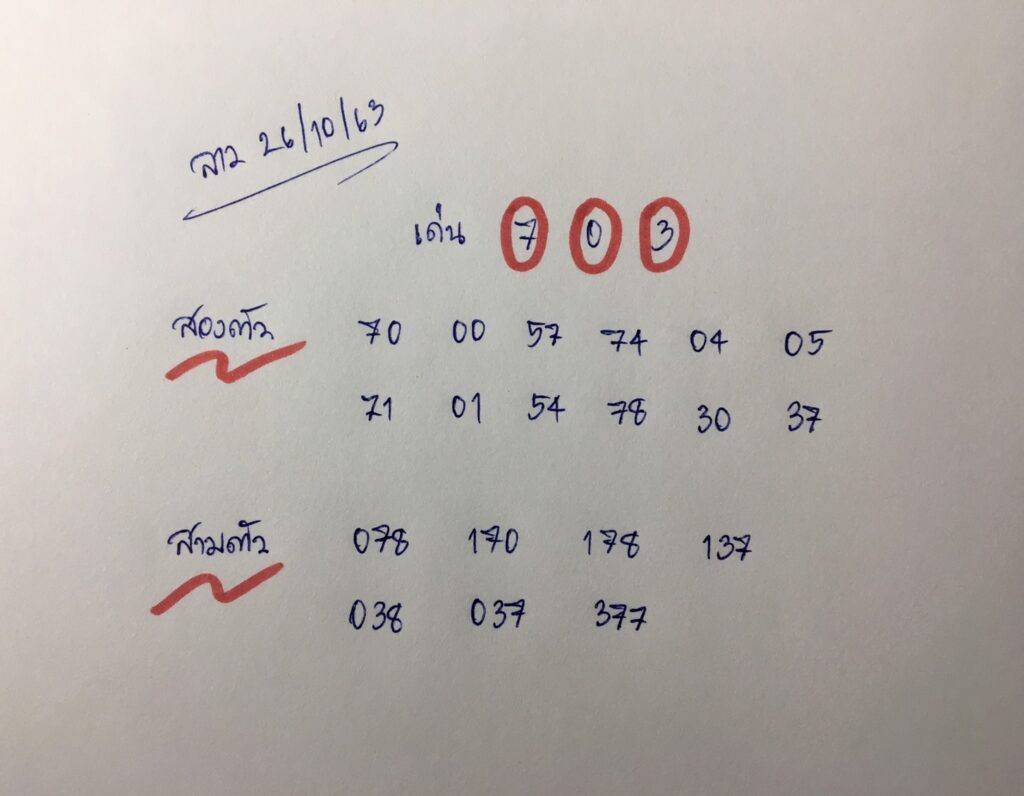 ลาว 26/10/63
เด่น 7 0 3
สองตัว 70 00 57 74 04 05
71 01 54 78 30 37
สามตัว 078 170 178 137
038 037 377